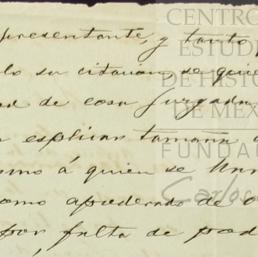 presentante, y tanto
lo su citación se quie
ad de cosa juzgada
esplicar tamaña
omo á quien se
omo apoderado de
por falta de pod
CENTRO
ESTUDI
DE HISTOR
DE MÉXI
FUNDA
Carlos